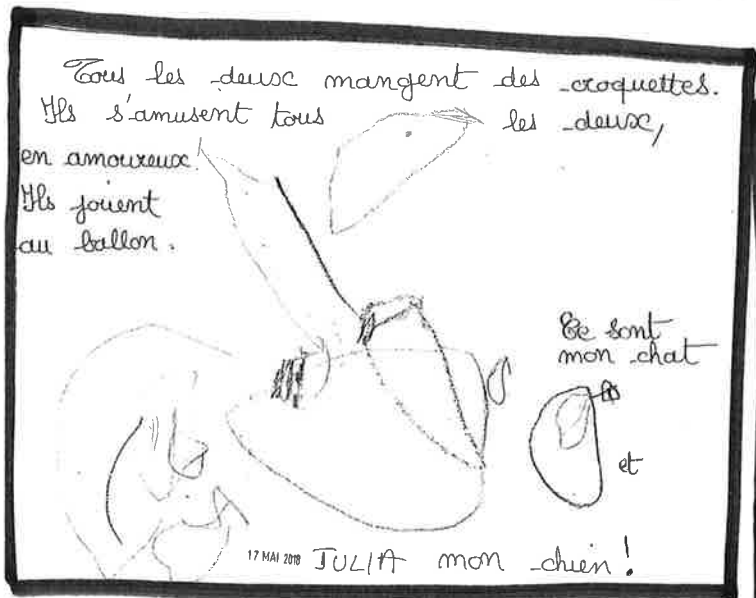 Tous les deux mangent des croquettes.
Ils s'amusent tous les deux,
en amoureux.
Ils jouent
au ballon.
Ce sont
mon chat
et
17 MAI 2018 JULIA mon chien !